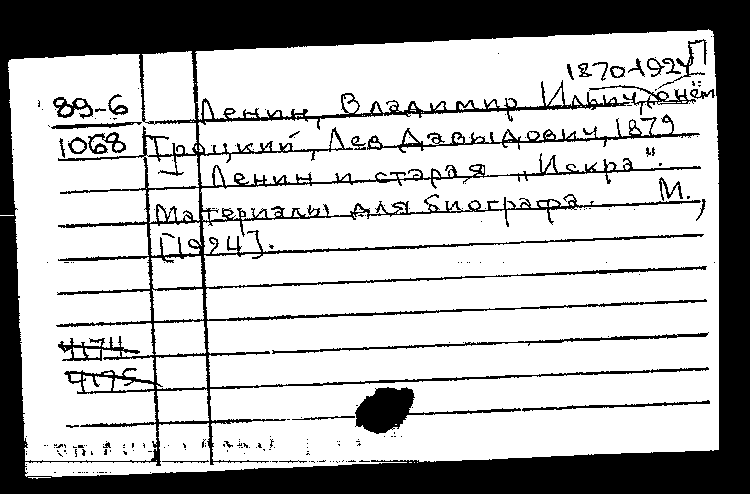 1870-1924
89-6 Ленин, Владимир Ильич, о нём
1068 Троцкий, Лев Давыдович, 1879
Ленин и старая „Искра“.
Материалы для биографа. М.,
[1924].
4174
4175